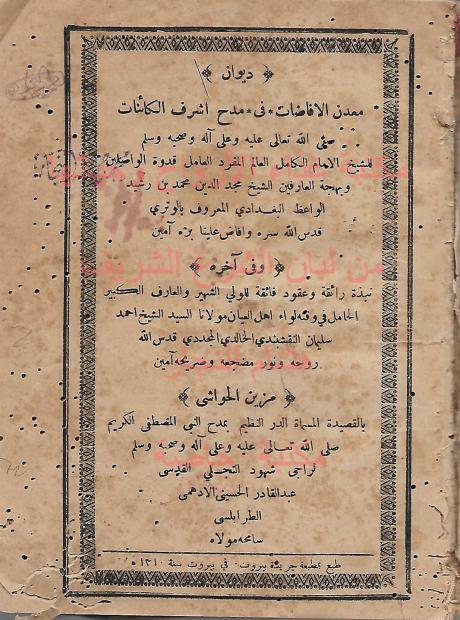 ﴿ ديوان ﴾
معدن الافاضات * فى * مدح اشرف الكائنات
صلى الله تعالى عليه وعلى آله وصحبه وسلم
للشيخ الامام الكامل العالم المفرد العامل قدوة الواصلين
وبهجة العارفين الشيخ مجد الدين محمد بن رشيد
الواعظ البغدادي المعروف بالوتري
قدس الله سره وافاض علينا بره آمين
﴿ وفى آخره ﴾
نبذة رائقة وعقود فائقة للولي الشهير والعارف الكبير
الحامل في وقته لواء اهل العيان مولانا السيد الشيخ احمد
سليمان النقشبندي الخالدي المجددي قدس الله
روحه ونور مضجعه وضريحه آمين
﴿ مزين الحواشى ﴾
بالقصيدة المسماة الدر النظيم بمدح النبي المصطفى الكريم
صلى الله تعالى عليه وعلى آله وصحبه وسلم
لراجى شهود التجلى القدسى
عبدالقادر الحسينى الادهمى
الطرابلسى
سامحه مولاه
طبع بمطبعة جريدة بيروت * في بيروت سنة ١٣١٠ *